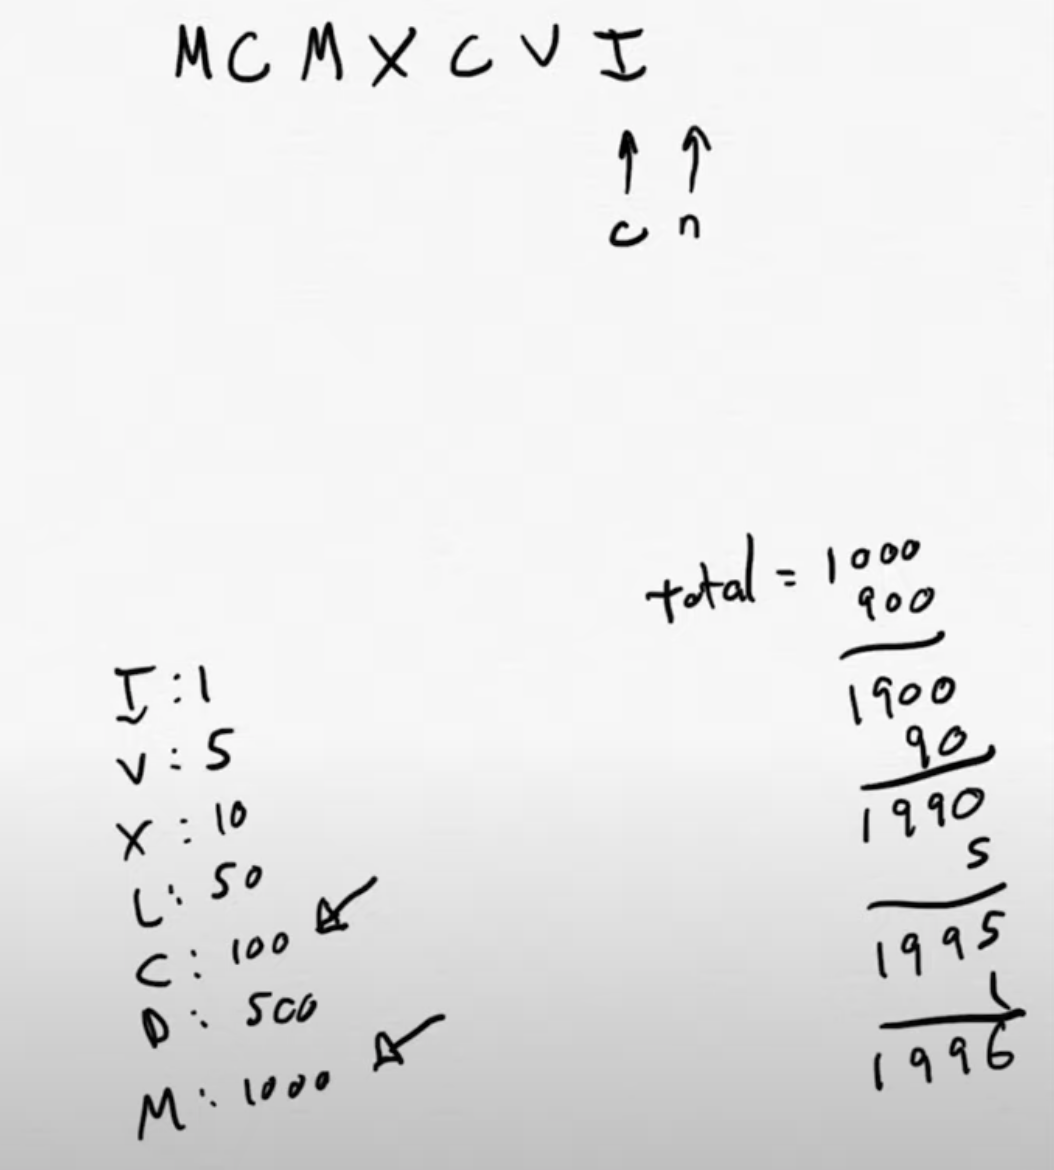 M C M X C V I
c n
total = 1000
900
1900
90
1990
5
1995
1
1996
I : 1
V : 5
X : 10
L : 50
C : 100
D : 500
M : 1000